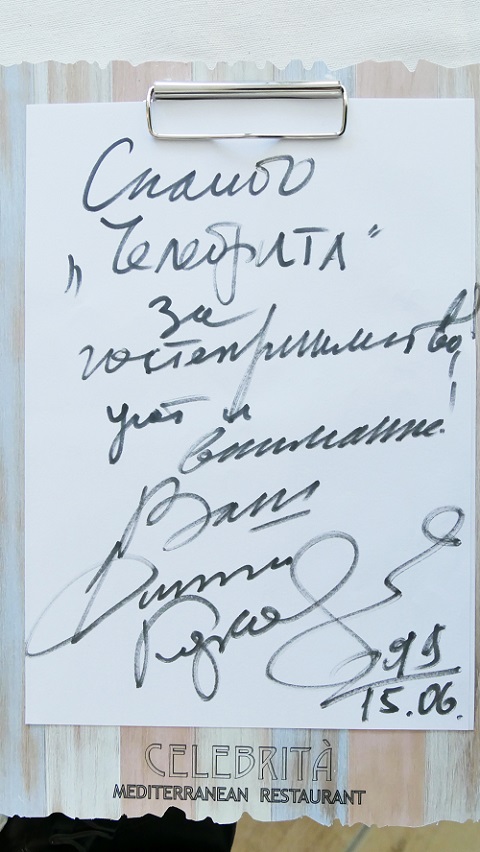 Спасибо
„Челебрита"
за
гостеприимство,
уют и
внимание!
Ваш
Дмитрий
15.06.
CELEBRITÀ
MEDITERRANEAN RESTAURANT